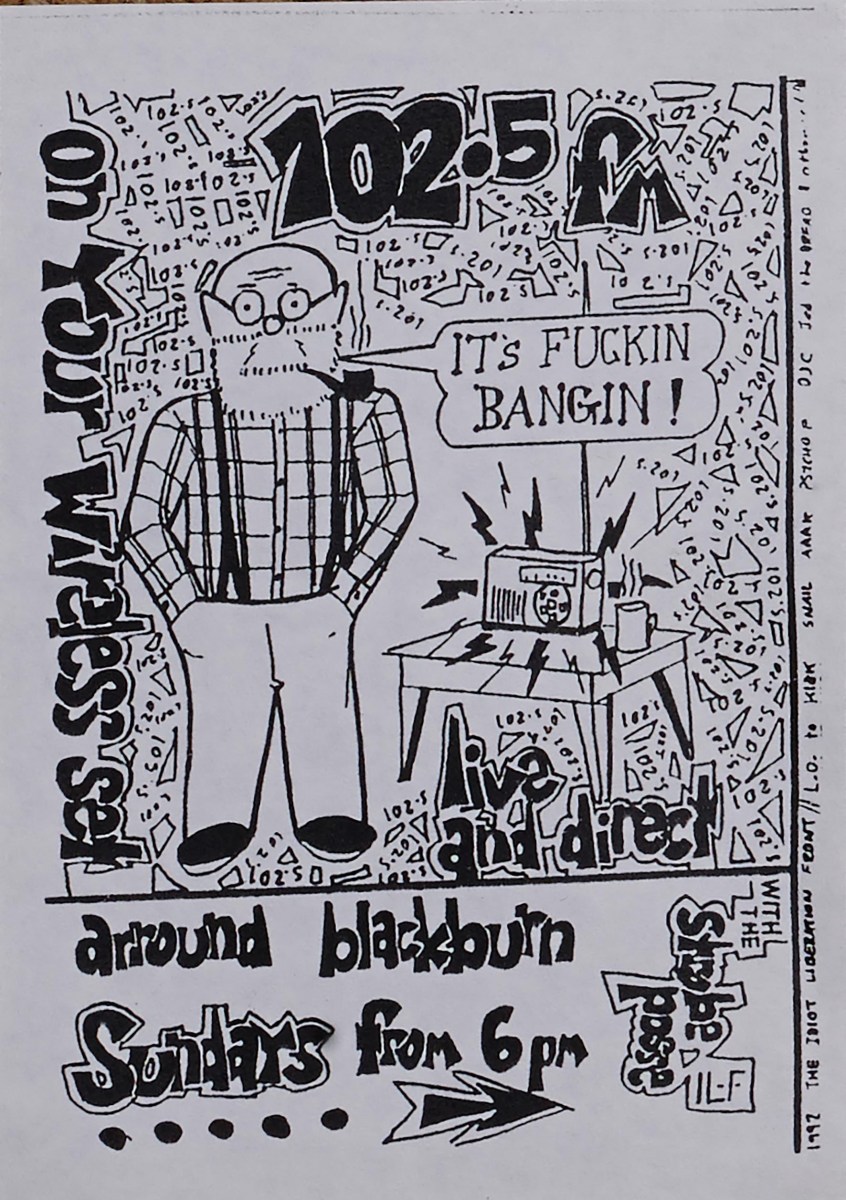 102.5 fm
on Your wireless set
IT'S FUCKIN
BANGIN!
live
and direct
arround blackburn
Sundays from 6 pm
WITH
THE
posse
ILF
1992 THE IDIOT LIBERATION FRONT // L.O. to KIRK SNAIL AAAK PSYCHOP DJC Jed the DREAD